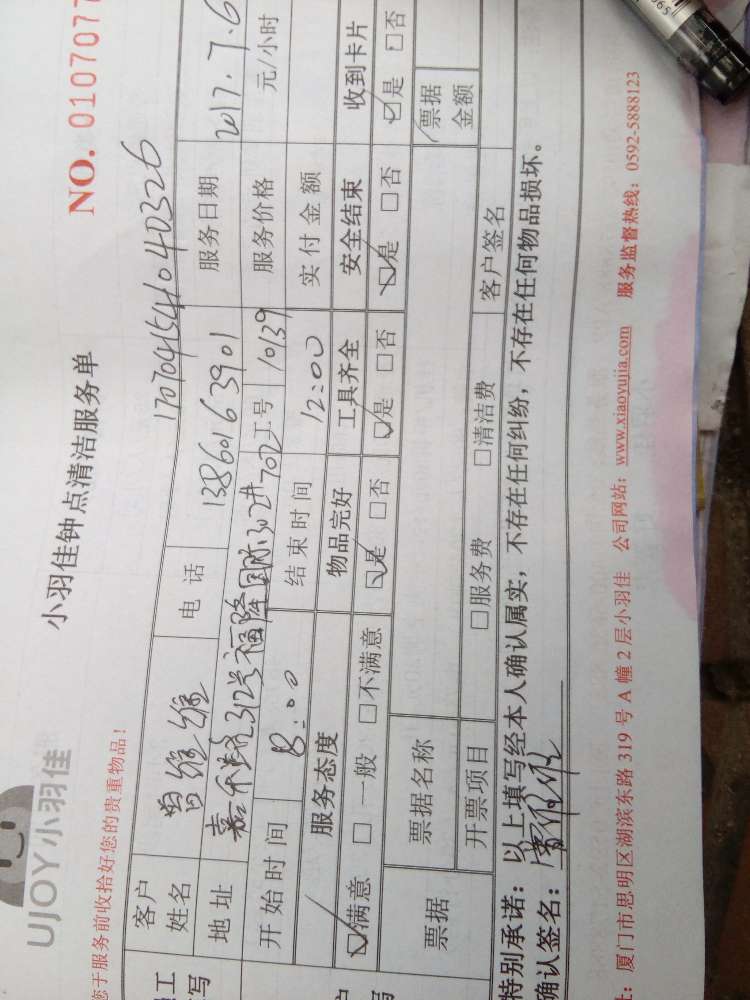 UJOY小羽佳
小羽佳钟点清洁服务单
NO. 0107077
您于服务前收拾好您的贵重物品!
17070415410 40326
客户姓名 曾维维 电话 13860163901 服务日期 2017.7.6
地址 嘉禾路312号福隆国际302进702 工号 10139 服务价格 元/小时
开始时间 8:00 结束时间 12:00 实付金额
服务态度 物品完好 工具齐全 安全结束 收到卡片
☑满意 □一般 □不满意 ☑是 □否 ☑是 □否 ☑是 □否 ☑是 □否
票据 票据名称 票据金额
开票项目 □服务费 □清洁费 客户签名
特别承诺:以上填写经本人确认属实,不存在任何纠纷,不存在任何物品损坏。
确认签名:
:厦门市思明区湖滨东路 319 号 A 幢 2 层小羽佳 公司网站:www.xiaoyujia.com 服务监督热线:0592-5888123